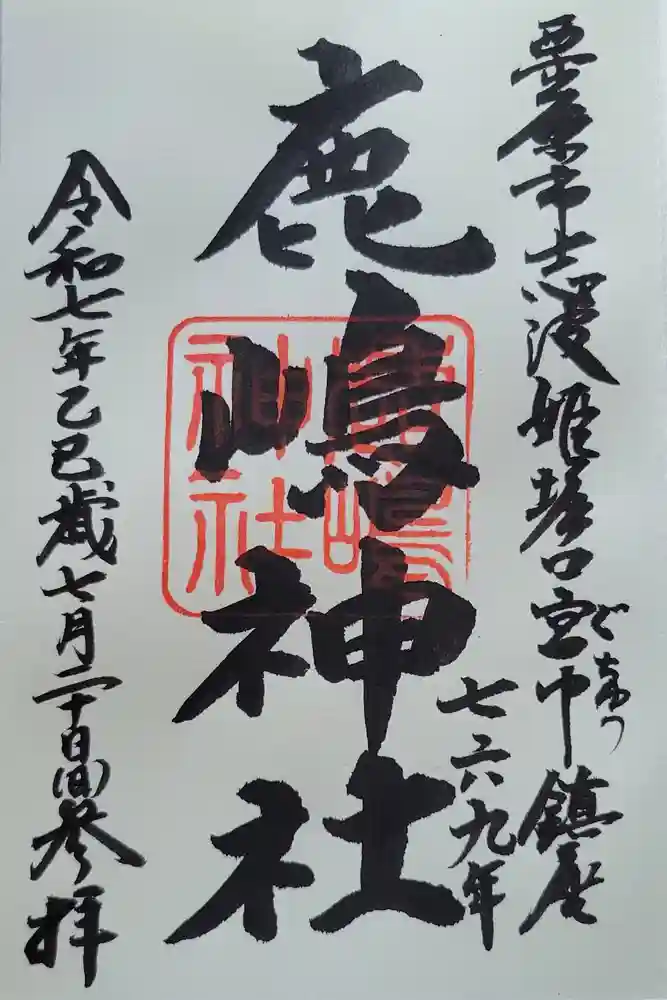 栗原市志波姫堀口宮中鎮座
七六九年
鹿嶋神社
鹿嶋
神社
令和七年乙巳歳七月二十日(日)参拝